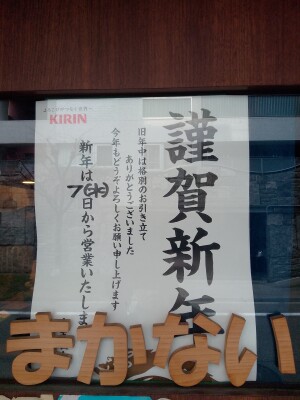 謹賀新年
旧年中は格別のお引き立て
ありがとうございました
今年もどうぞよろしくお願い申し上げます
新年は7(水)日から営業いたしま
KIRIN
まかない